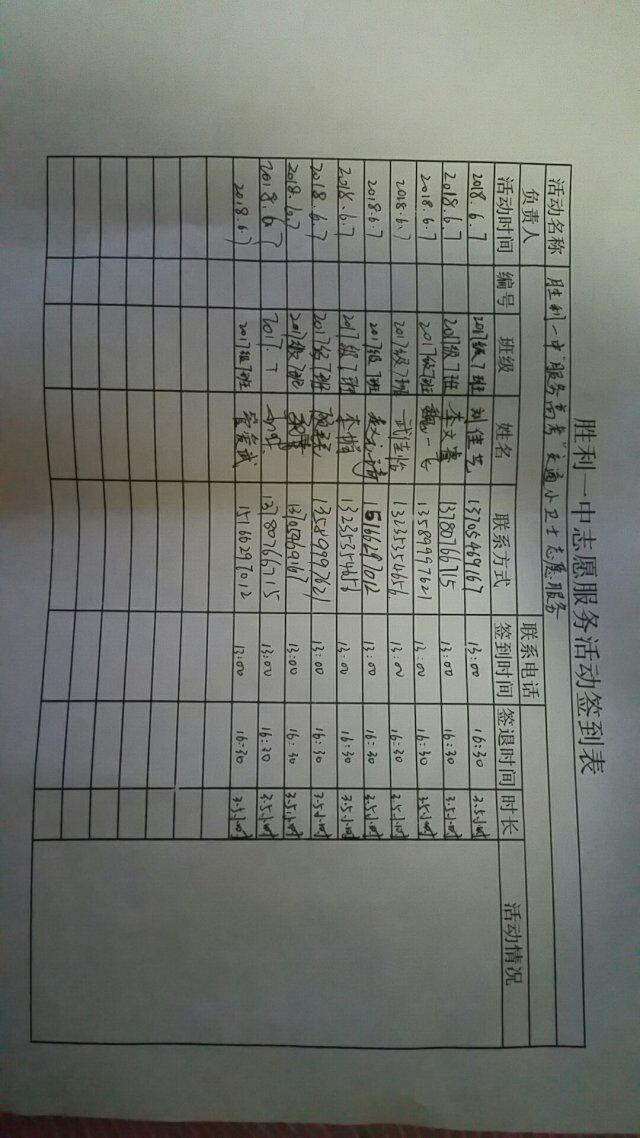 胜利一中志愿服务活动签到表
活动名称 胜利一中"服务高考"交通小卫士志愿服务
负责人 联系电话
活动时间 编号 班级 姓名 联系方式 签到时间 签退时间 时长 活动情况
2018.6.7 2017级7班 刘佳艺 13705469167 13:00 16:30 3.5小时
2018.6.7 2017级7班 李文睿 13780766715 13:00 16:30 3.5小时
2018.6.7 2017级7班 魏一飞 13589997621 13:00 16:30 3.5小时
2018.6.7 2017级7班 武佳怡 13235354656 13:00 16:30 3.5小时
2018.6.7 2017级7班 15166297012 13:00 16:30 3.5小时
2018.6.7 2017级7班 13235354656 13:00 16:30 3.5小时
2018.6.7 2017级7班 13589997621 13:00 16:30 3.5小时
2018.6.7 2017级7班 13705469167 13:00 16:30 3.5小时
2018.6.7 2017.7 13780766715 13:00 16:30 3.5小时
2018.6.7 2017级7班 15166297012 13:00 16:30 3.5小时